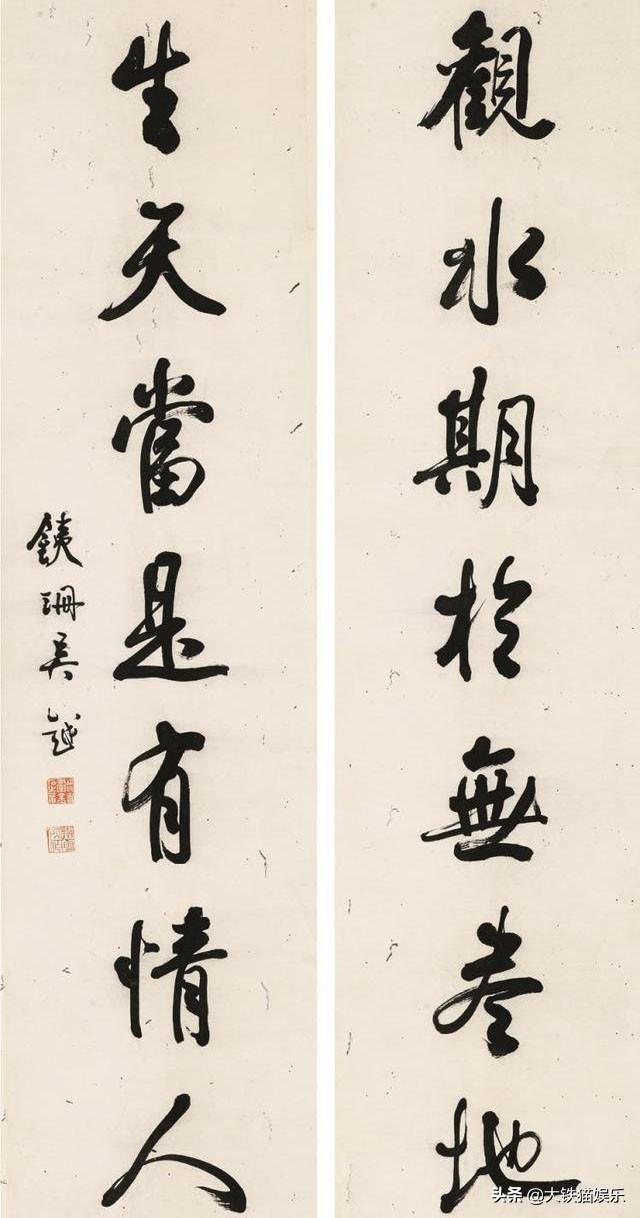 觀水期於無盡地
生天當是有情人
銕珊吳
头条 @大铁猫娱乐